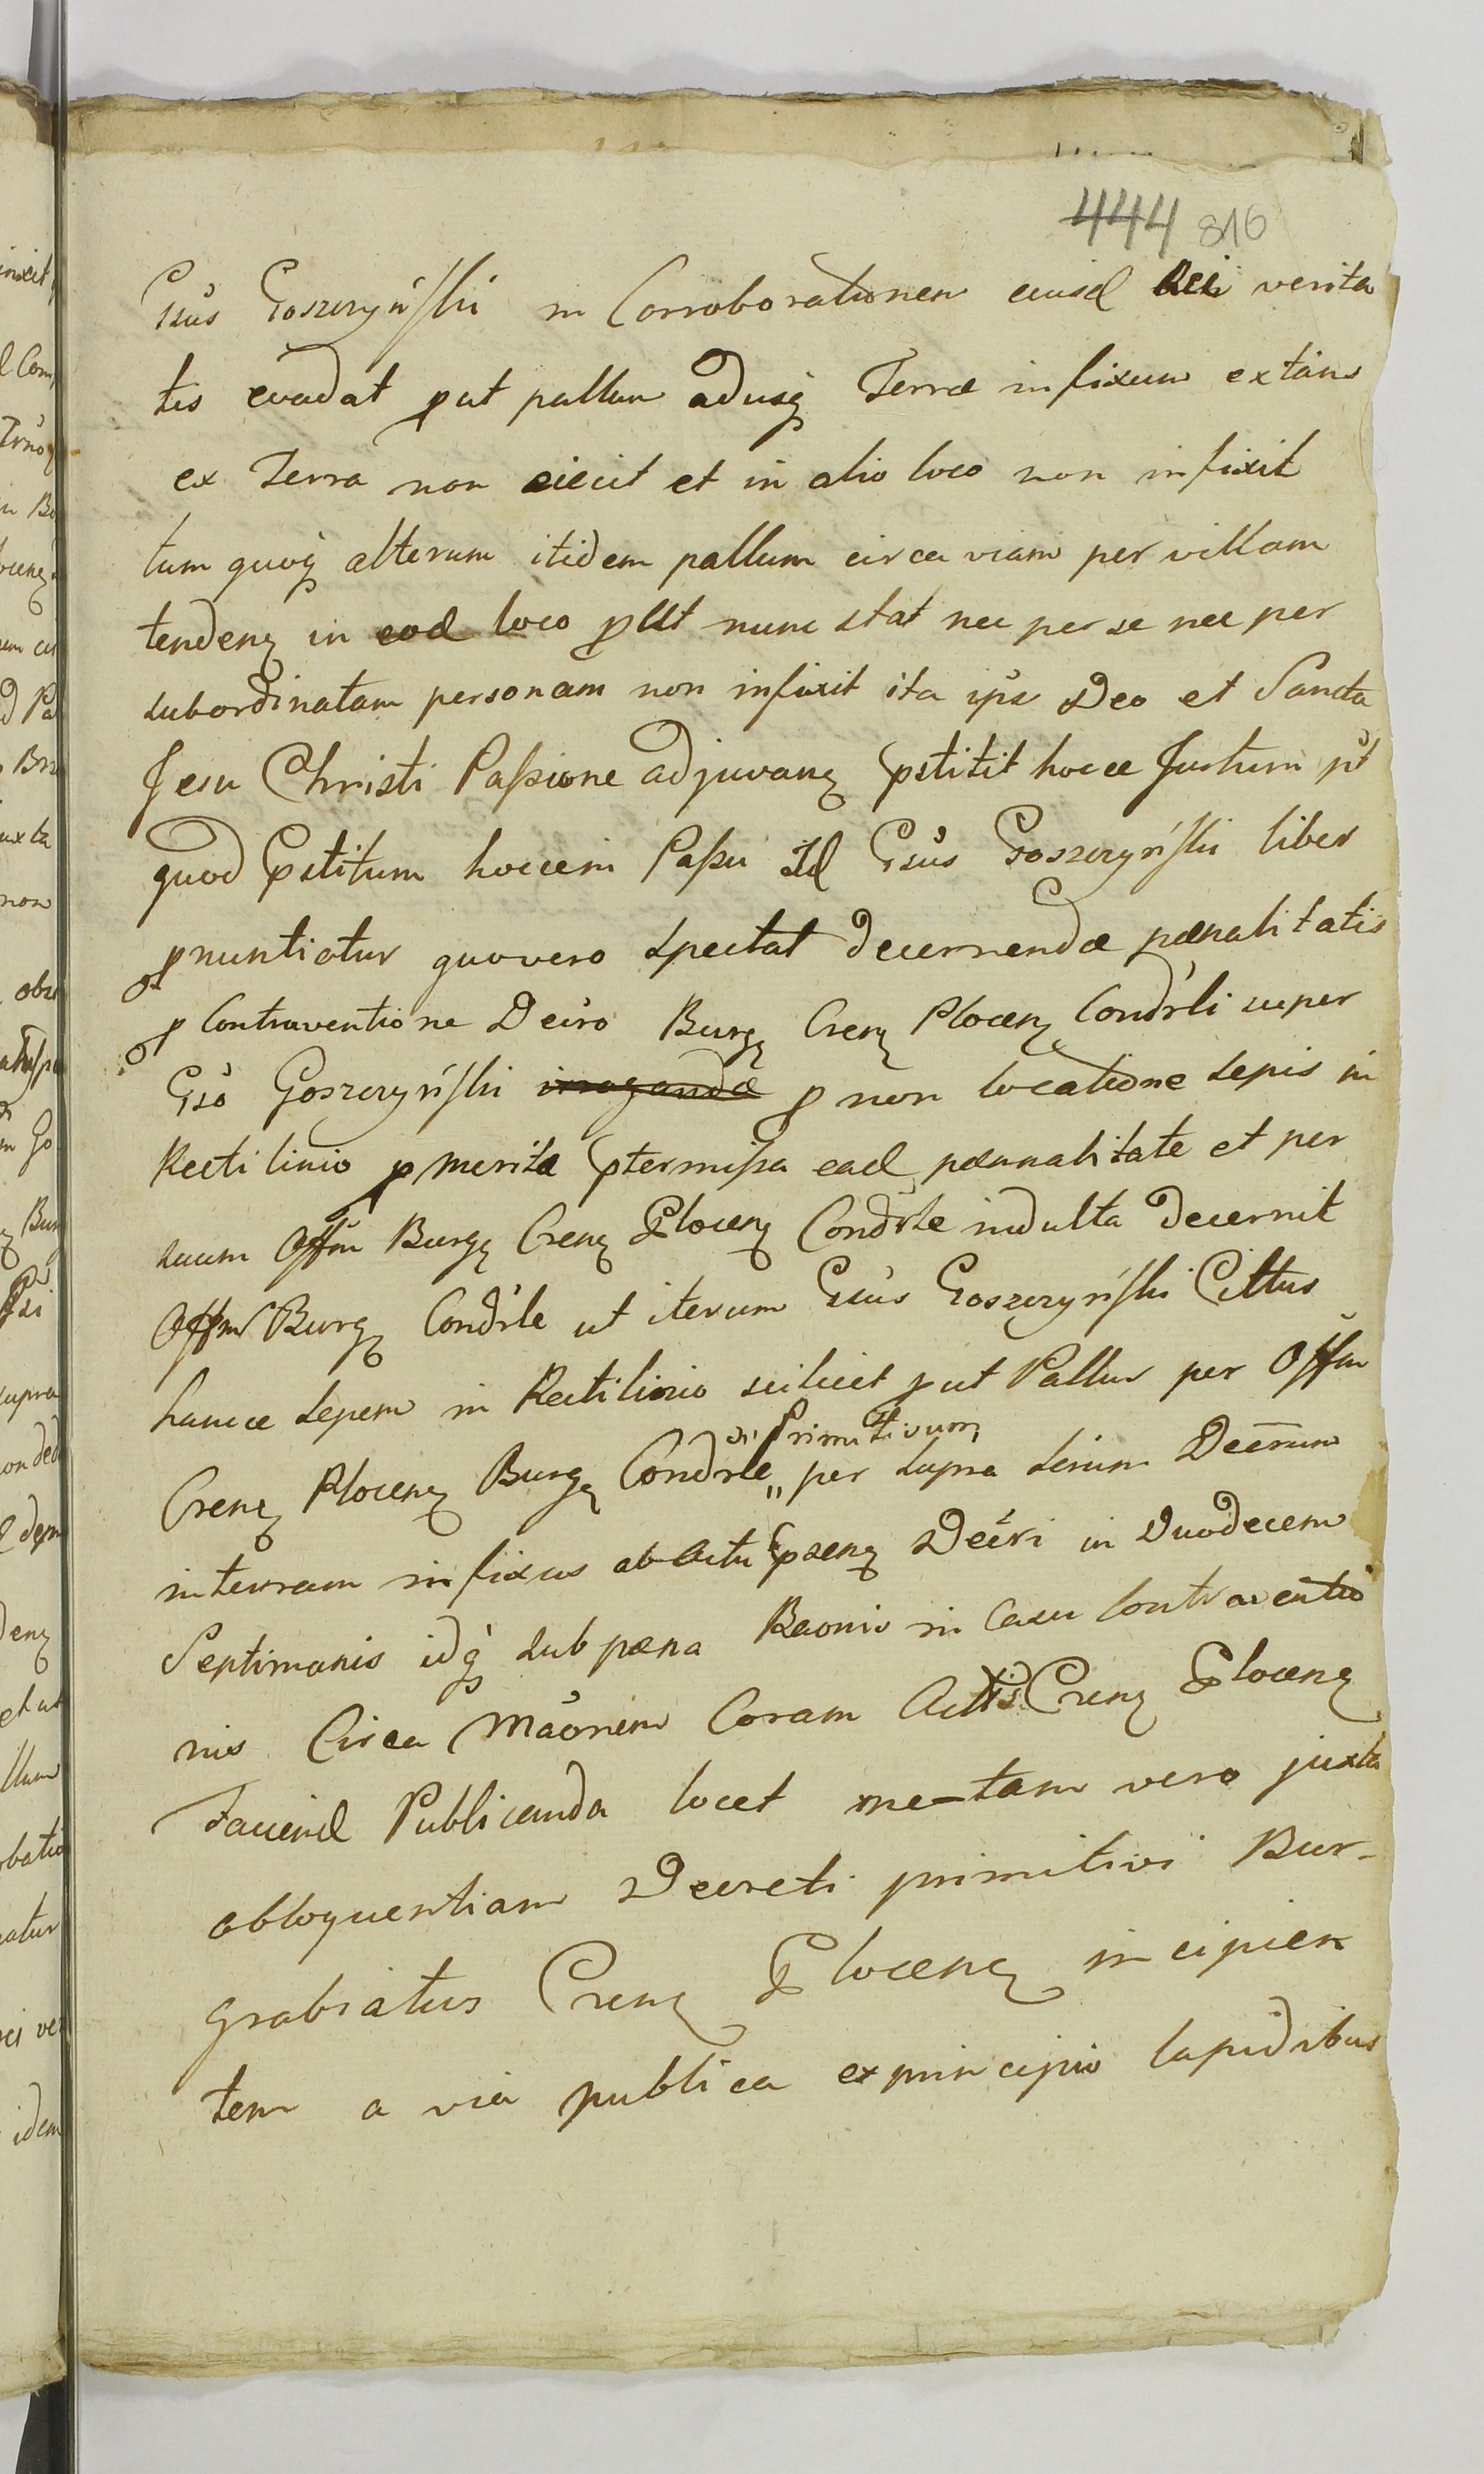 444 816
Gsus Goszczyński in Corroborationem eiusd Rei verita
tis evadat put pallum adusq Terræ infixum extans
ex Terra non eiecit et in alio loco non infixit
tum quoq alterum itidem pallum circa viam per villam
tendenq in eod loco put nunc stat nec per se nec per
subordinatam personam non infixit ita ips Deo et Sancta
Jesu Christi Passione adjuvanq pstitit hocce Justum pt
quod pstitum hoccein Passu Id Gsus Goszczyński liber
pnuntiatur quovero spectat decernendæ pænalitatis
p Contraventione Decro Burg Crenq Plocenq Condrli super
Gso Goszczyński irrogandæ p non locatione sepis in
Rectilinio pmerita ptermissa ead pænalitate et per
suum Offm Burg Crenq Plocenq Condrle indulta decernit
Offm Burg Condrle ut iterum Gsus Goszczyński Cittus
hancce sepem in Rectilinio scilicet put Pallus per Offm
Primitivum
Crenq Plocenq Burg Condrle „ per supra Decrum
interram infixus ab actu psenq Decri in Duodecem
Septimanis idq sub pæna Baonis in Casu Contraventio
nis Circa Maonem Coram Actis Crenq Plocenq
Faciend Publicanda locet metam vero juxta
obloquentiam Decreti primitivi Bur-
grabiatus Crenq Plocenq incipien
tem a via publica exprincipio lapidibus